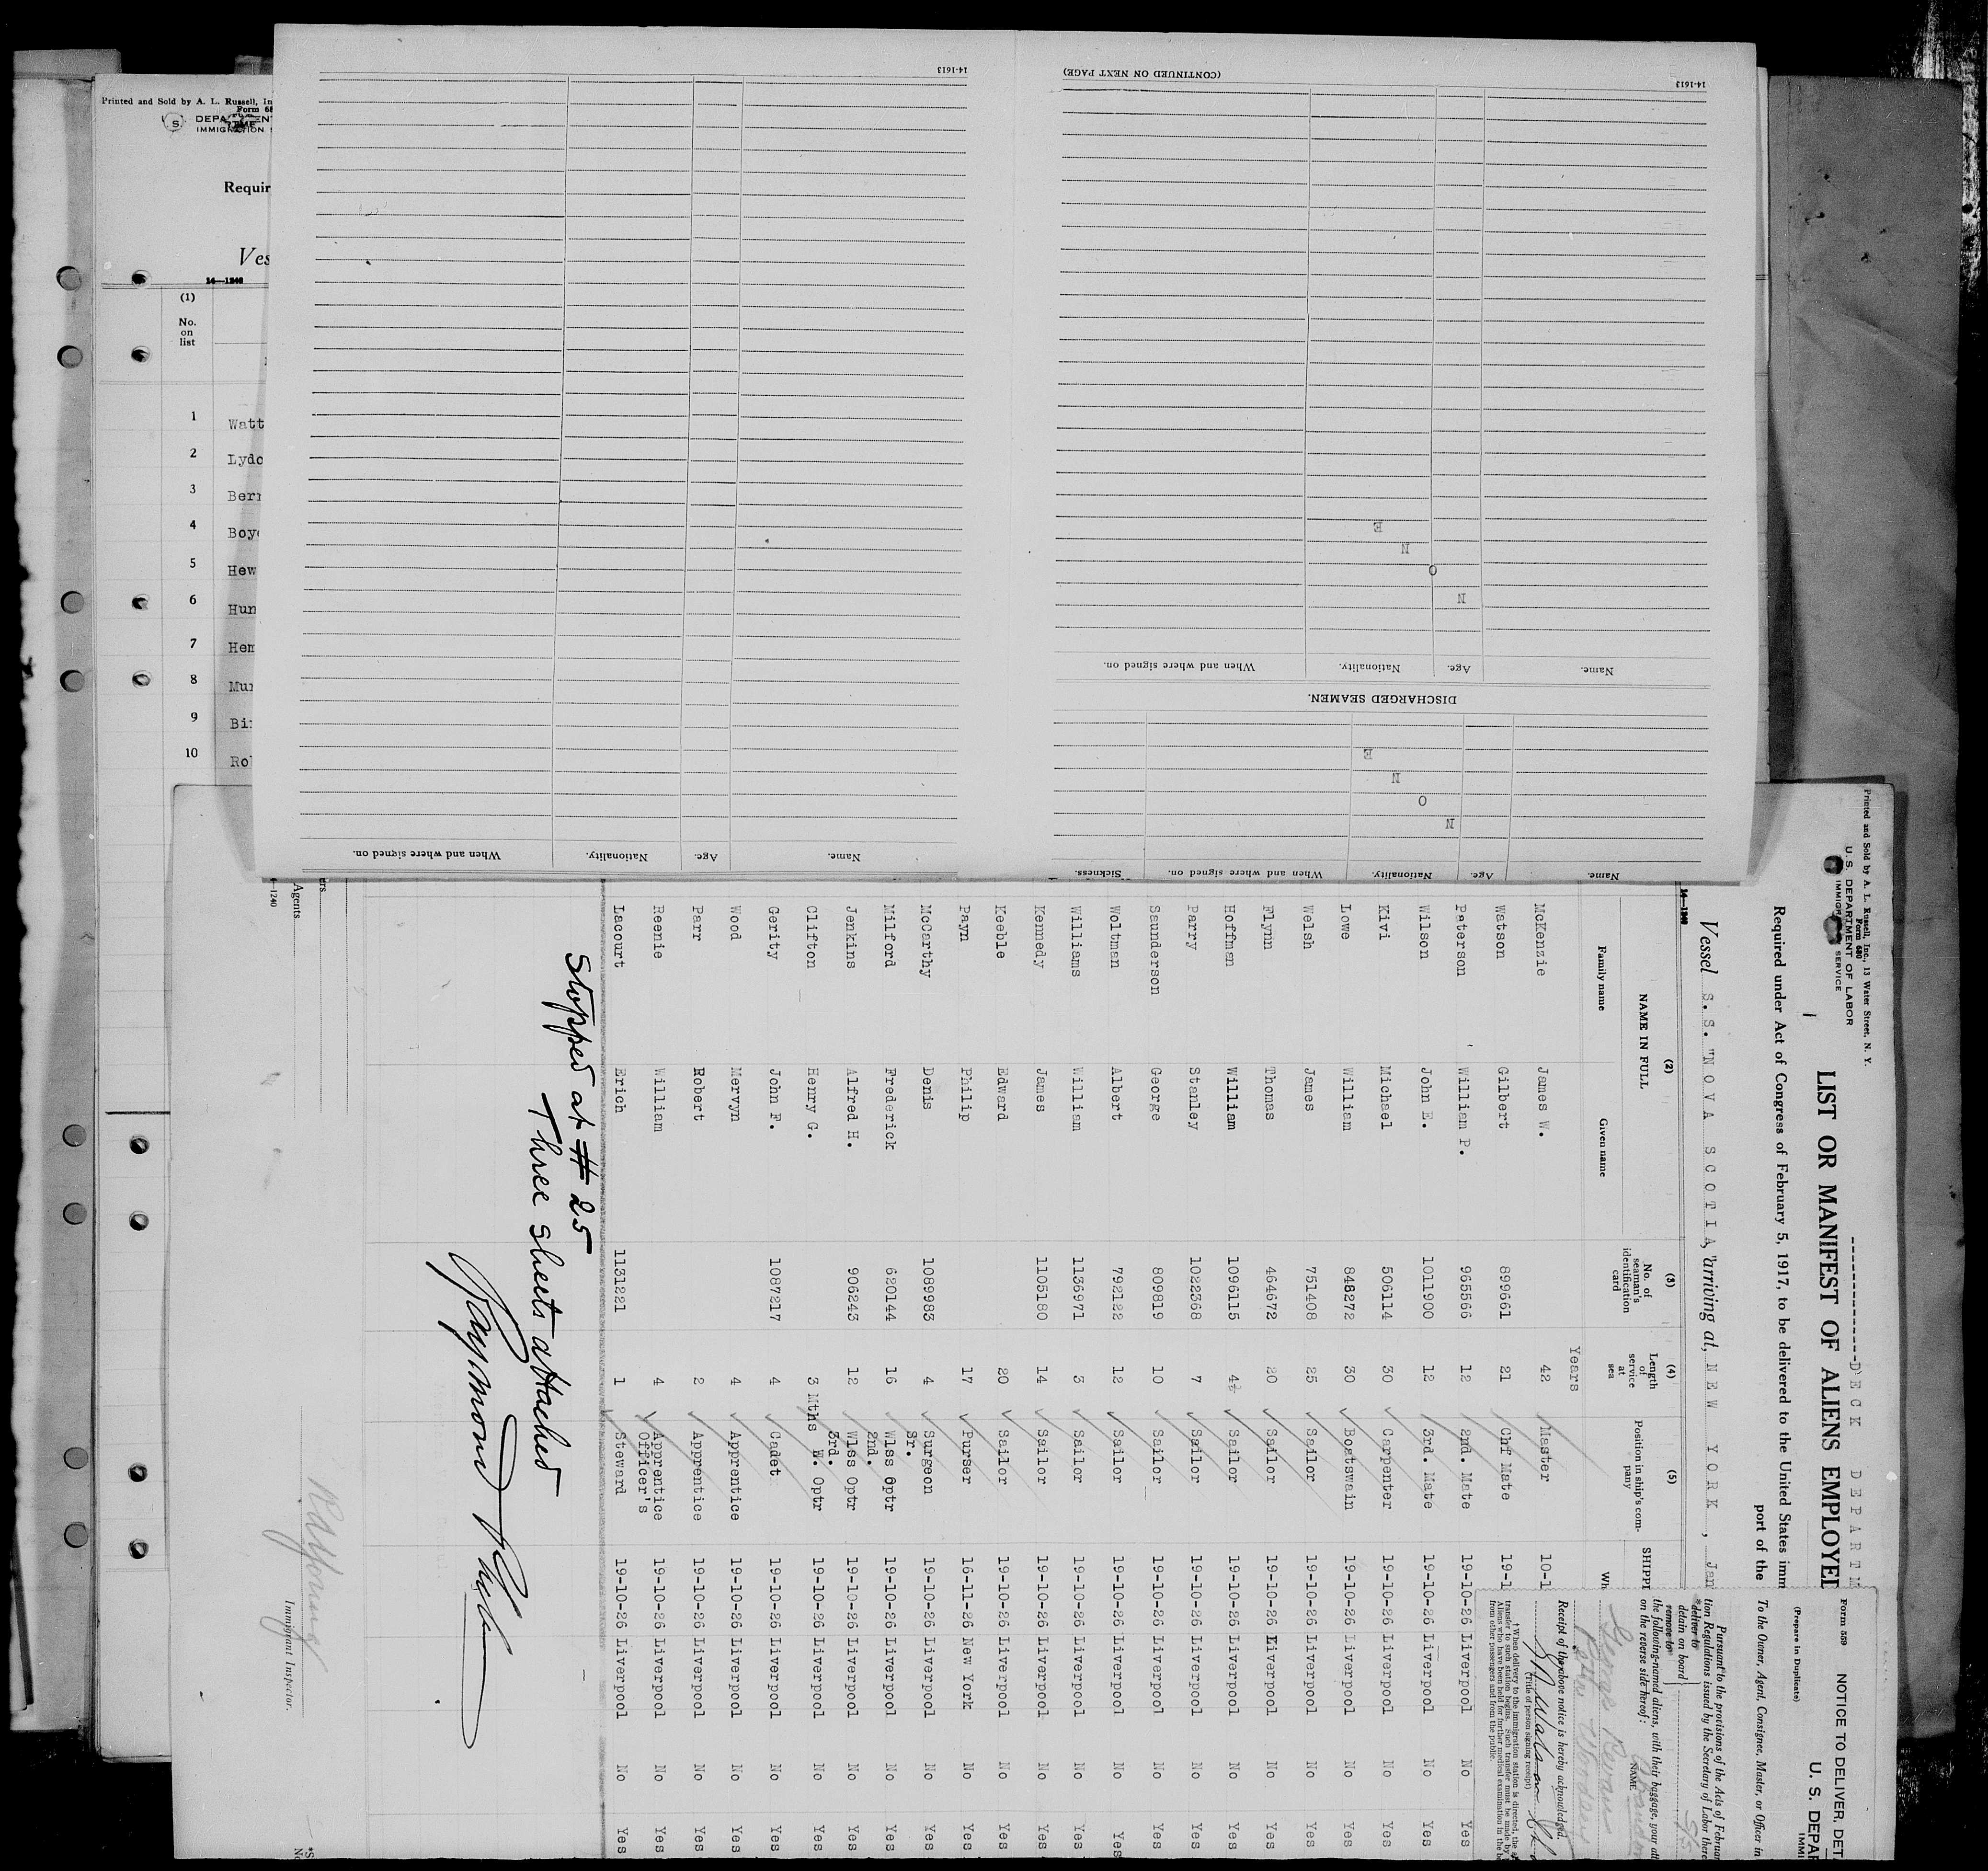 Printed and Sold by A. L. Russell, In
Form 68
DEPARTMENT
IMMIGRATION S
Requir
Ves
14—1240
(1)
No.
on
list
1 Watt
2 Lydo
3 Berr
4 Boye
5 Hew
6 Hun
7 Hem
8 Mur
9 Bi
10 Ro
14-1613
When and where signed on. Nationality. Age. Name.
14-1613
(CONTINUED ON NEXT PAGE)
N
O
N
E
Name. Age. Nationality. When and where signed on.
DISCHARGED SEAMEN.
N
O
N
E
Name. Age. Nationality. When and where signed on. Sickness.
Printed and Sold by A. L. Russell, Inc., 13 Water Street, N. Y.
Form 680
U. S. DEPARTMENT OF LABOR
IMMIGRATION SERVICE
DECK DEPARTM
LIST OR MANIFEST OF ALIENS EMPLOYED
Required under Act of Congress of February 5, 1917, to be delivered to the United States imm
port of the
Vessel S.S. "NOVA SCOTIA," arriving at NEW YORK, Jan
14—1240
(2) (3) (4) (5)
NAME IN FULL
Family name Given name
No. of seaman's identification card
Length of service at sea
Position in ship's company
SHIPPE
Wh
Years
McKenzie James W. 42 Master 10-1
Watson Gilbert 899661 21 Chf Mate 19-1
Peterson William P. 965566 12 2nd. Mate 19-10-26 Liverpool No Yes
Wilson John E. 1011900 12 3rd. Mate 19-10-26 Liverpool No Yes
Kivi Michael 506114 30 Carpenter 19-10-26 Liverpool No Yes
Lowe William 848272 30 Boatswain 19-10-26 Liverpool No Yes
Welsh James 751408 25 Sailor 19-10-26 Liverpool No Yes
Flynn Thomas 464672 20 Sailor 19-10-26 Liverpool No Yes
Hoffman William 1096115 4½ Sailor 19-10-26 Liverpool No Yes
Parry Stanley 1022368 7 Sailor 19-10-26 Liverpool No Yes
Saunderson George 809819 10 Sailor 19-10-26 Liverpool No Yes
Woltman Albert 792122 12 Sailor 19-10-26 Liverpool No Yes
Williams William 1136971 3 Sailor 19-10-26 Liverpool No Yes
Kennedy James 1105180 14 Sailor 19-10-26 Liverpool No Yes
Keeble Edward 20 Sailor 19-10-26 Liverpool No Yes
Payn Philip 17 Purser 16-11-26 New York No Yes
McCarthy Denis 1089983 4 Surgeon 19-10-26 Liverpool No Yes
Milford Frederick 620144 16 Sr. Wlss Optr 19-10-26 Liverpool No Yes
Jenkins Alfred H. 906243 12 2nd. Wlss Optr 19-10-26 Liverpool No Yes
Clifton Henry G. 3 Mths 3rd. W. Optr 19-10-26 Liverpool No Yes
Gerity John F. 1087217 4 Cadet 19-10-26 Liverpool No Yes
Wood Mervyn 4 Apprentice 19-10-26 Liverpool No Yes
Parr Robert 2 Apprentice 19-10-26 Liverpool No Yes
Reenie William 4 Apprentice 19-10-26 Liverpool No Yes
Lacourt Erich 1131221 1 Officer's Steward 19-10-26 Liverpool No Yes
Stopped at # 25
Three sheets attached
Raymond
Immigrant Inspector.
ers
Agents
-1240
Form 559
NOTICE TO DELIVER, DET
(Prepare in Duplicate)
U. S. DEPAR
IMMI
To the Owner, Agent, Consignee, Master, or Officer in
Pursuant to the provisions of the Acts of Februar
tion Regulations issued by the Secretary of Labor there
*deliver to
detain on board
remove to
the following-named aliens, with their baggage, your att
on the reverse side hereof:
NAME
Receipt of the above notice is hereby acknowledged.
(Title of person signing receipt)
†When delivery to the immigration station is directed, the a
transfer to such station begins. Such transfer must be made by
Aliens who have been held for further medical examination in the b
from other passengers and from the public.